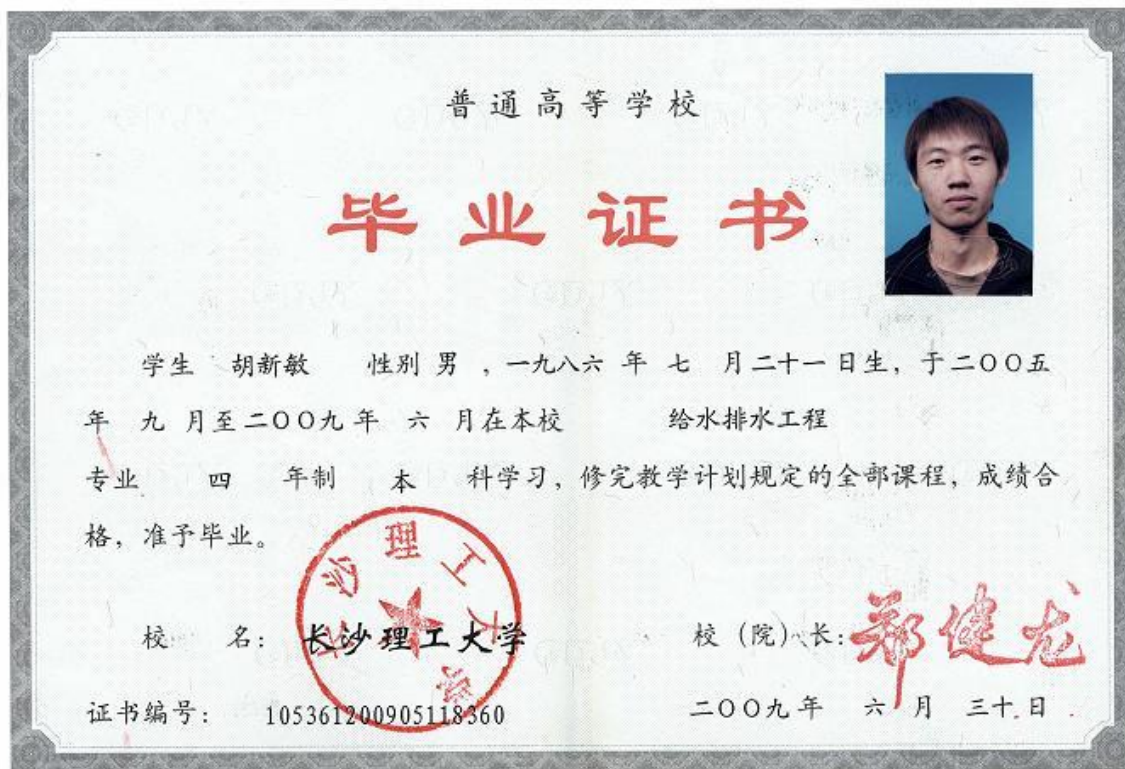 普通高等学校
毕业证书
学生 胡新敏 性别 男 ，一九八六 年 七 月二十一日生，于二〇〇五
年 九 月至二〇〇九年 六 月在本校 给水排水工程
专业 四 年制 本 科学习，修完教学计划规定的全部课程，成绩合
格，准予毕业。
长沙理工大学
校 名： 长沙理工大学
校（院）长：郑健龙
证书编号： 105361200905118360
二〇〇九年 六 月 三十日